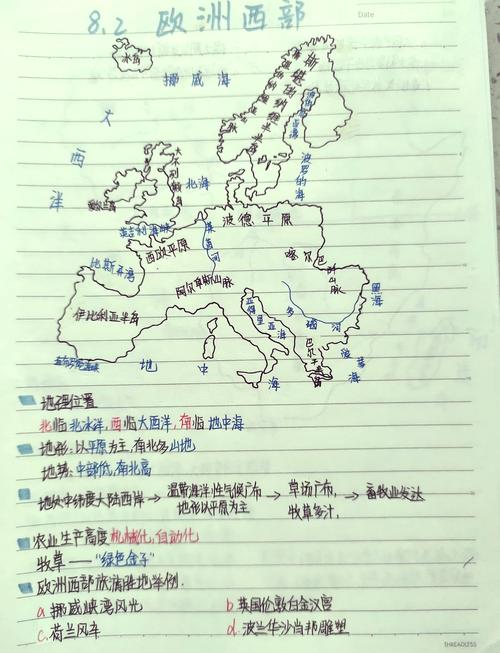 8.2 欧洲西部
Date
冰岛
挪威海
斯堪的纳维亚半岛
大西洋
大不列颠岛
北海
波罗的海
爱尔兰岛
英吉利海峡
波德平原
西欧平原
莱茵河
比斯开湾
喀尔巴阡山脉
阿尔卑斯山脉
黑海
伊比利亚半岛
亚得里亚海
多瑙河
巴尔干半岛
直布罗陀海峡
地中海
爱琴海
地理位置
北临北冰洋，西临大西洋，南临地中海
地形：以平原为主，南北多山地
地势：中部低，南北高
地处中纬度大陆西岸→温带海洋性气候广布 地形以平原为主→草场广布，牧草多汁，→畜牧业发达
农业生产高度机械化，自动化
牧草——"绿色金子"
欧洲西部旅游胜地举例.
a 挪威峡湾风光 b 英国伦敦白金汉宫
c. 荷兰风车 d. 波兰华沙肖邦雕塑
SHREADLESS